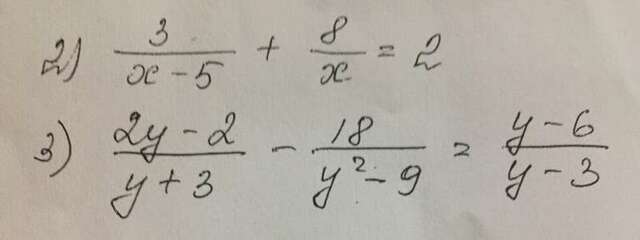 2) 3/(x-5) + 8/x = 2
3) (2y-2)/(y+3) - 18/(y²-9) = (y-6)/(y-3)